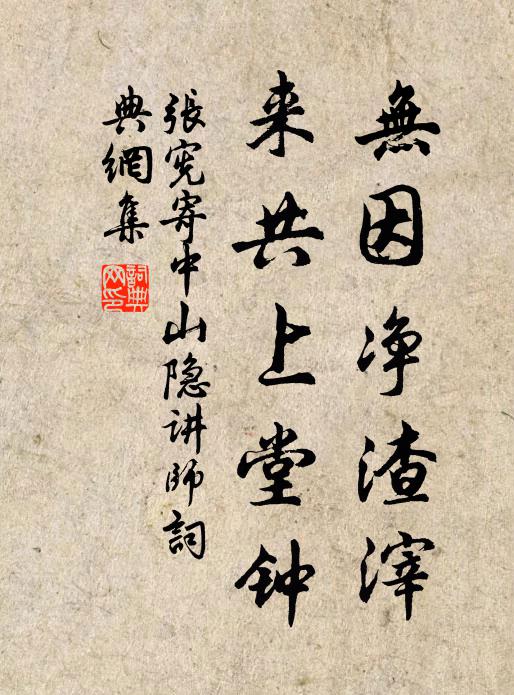 無因净渣滓
来共上堂钟
張宪寄中山隐讲師詞
典網集
詞典
网印